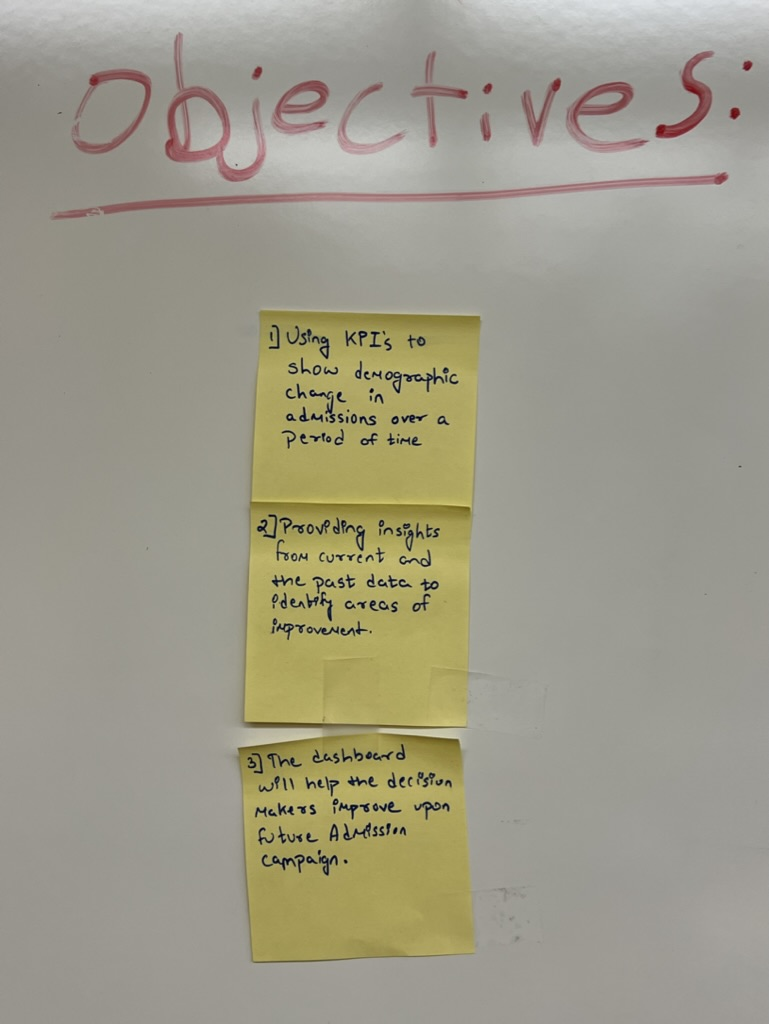 Objectives:
1] Using KPI's to
show demographic
change in
admissions over a
period of time
2] Providing insights
from current and
the past data to
identify areas of
improvement.
3] The dashboard
will help the decision
makers improve upon
future Admission
campaign.